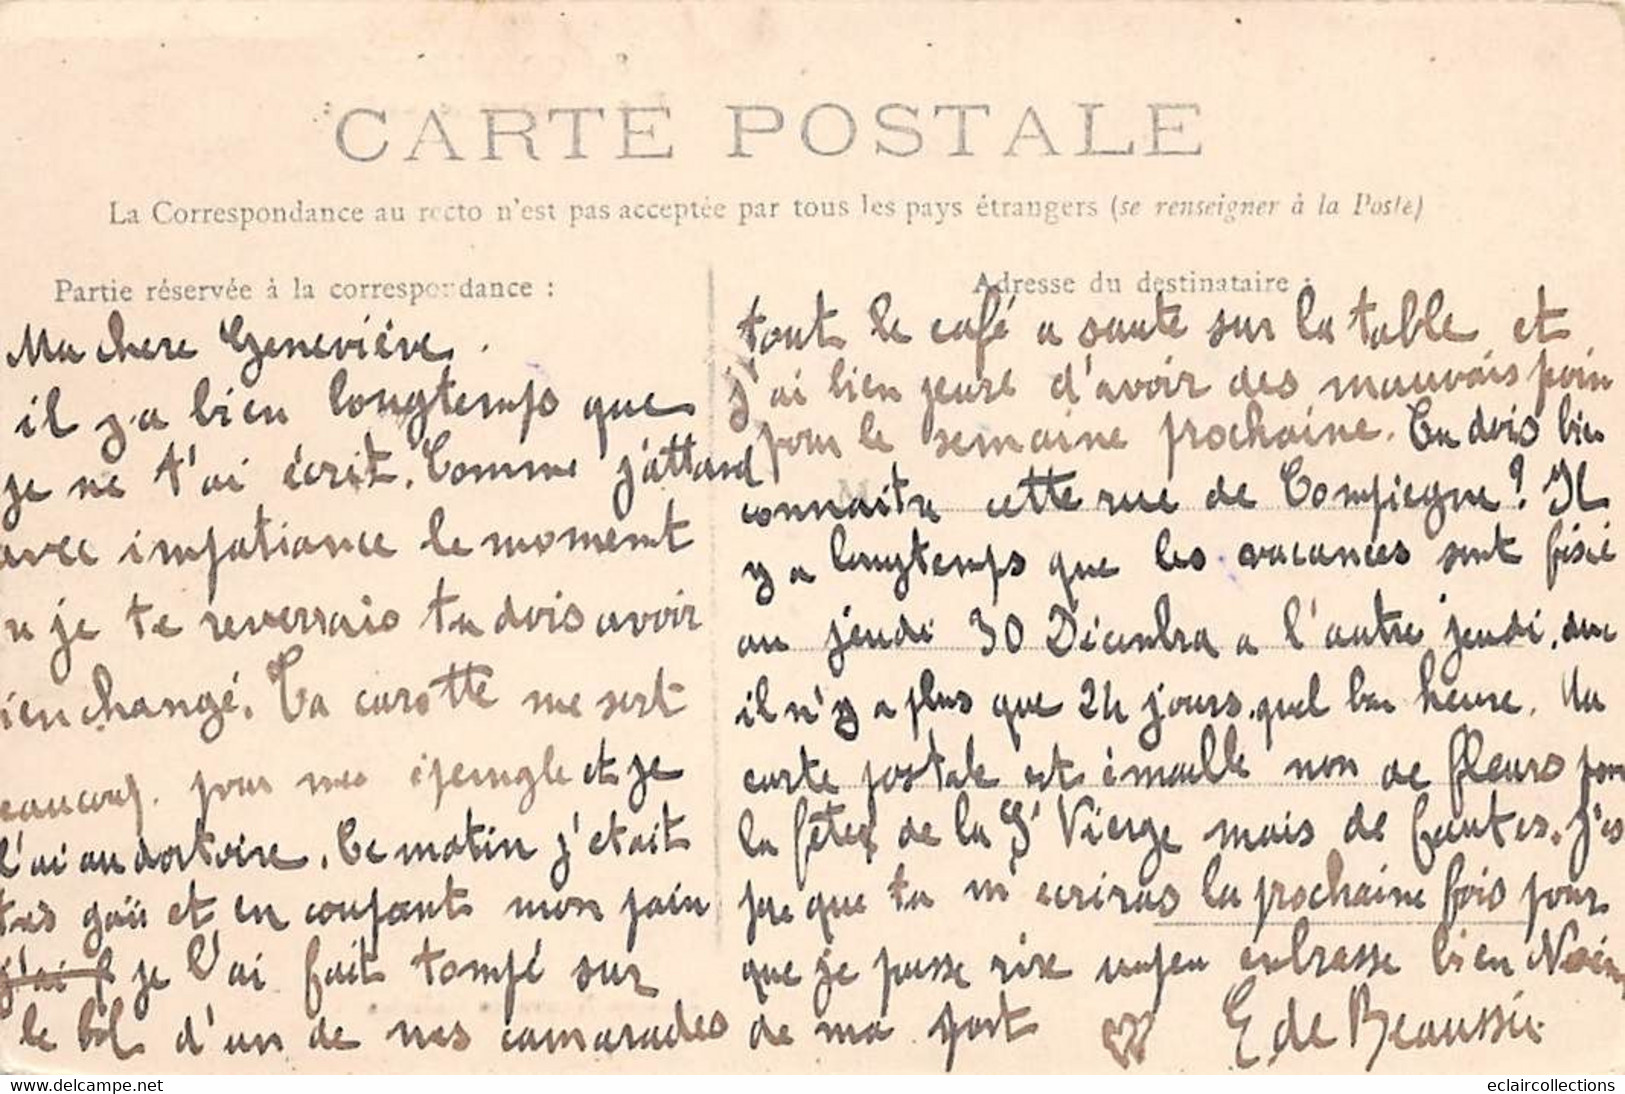 CARTE POSTALE
La Correspondance au recto n'est pas acceptée par tous les pays étrangers (se renseigner à la Poste)
Partie réservée à la correspondance :
Ma chere Geneviéve.
il y a bien longtemps que
je ne t'ai écrit. Comme j'attand
avec impatiance le moment
u je te reverrais tu dois avoir
ien changé. Ta carotte me sert
eaucoup. pour mes epeingle et je
l'ai au dortoire. Ce matin j'etait
tes gaü et en coupant mon pain
j'ai f je l'ai fait tompé sur
le bol d'un de nos camarades
Adresse du destinataire :
tout le café a sauté sur la table et
j'ai bien peure d'avoir des mauvais poin
pour le semaine prochaine. Tu dois bien
connaitre cette rue de Compiegne? Il
y a longtemps que les vacances sont fisié
au jeudi 30 Décembra a l'autre jeudi. donc
il n'y a plus que 24 jours. quel bon heure. Ma
carte postale est émaille non de fleurs pour
la fêtes de la St Vierge mais de fautes. J'es
pere que tu m'ecriras la prochaine fois pour
que je puisse rire un peu enbrasse bien
de ma part E de Beaussie
eclaircollections